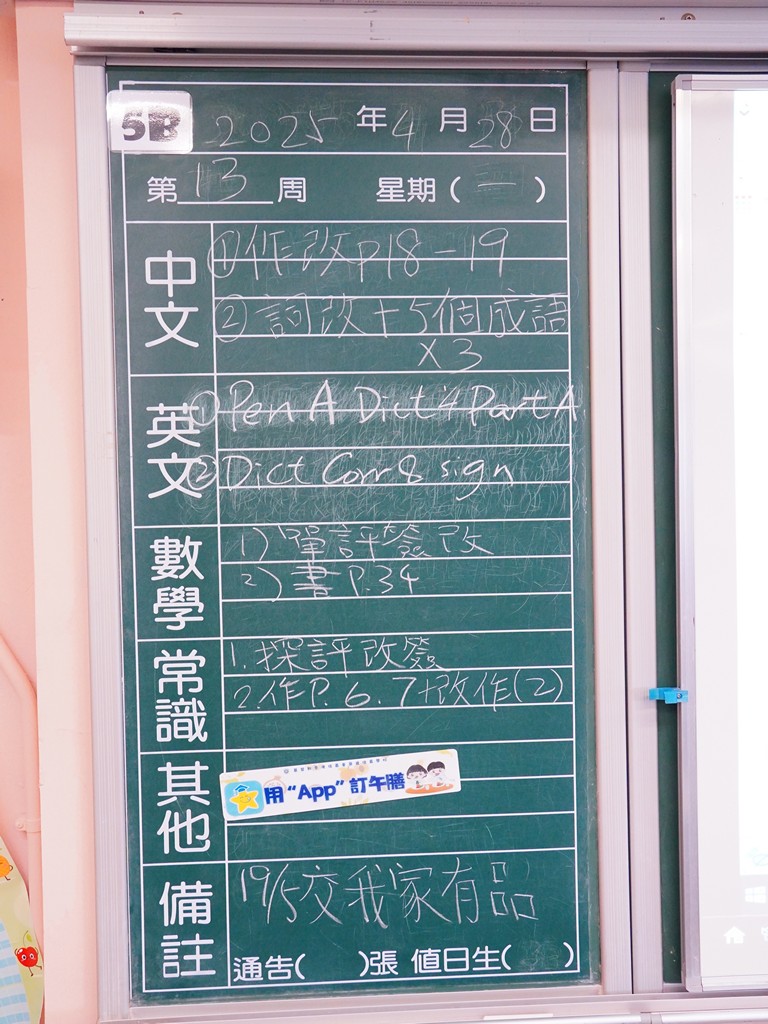 5B 2025 年 4 月 28 日
第 13 周 星期 ( 一 )
中文
①作改p18-19
②詞改+5個成語
x3
英文
① Pen A Dict 4 Part A
② Dict Corr & sign
數學
1) 單評簽改
2) 書 P.34
常識
1. 探評改簽
2. 作P. 6. 7+改作(2)
其他
用 “App” 訂午膳
備註
19/5交我家有品
通告( )張 值日生( )